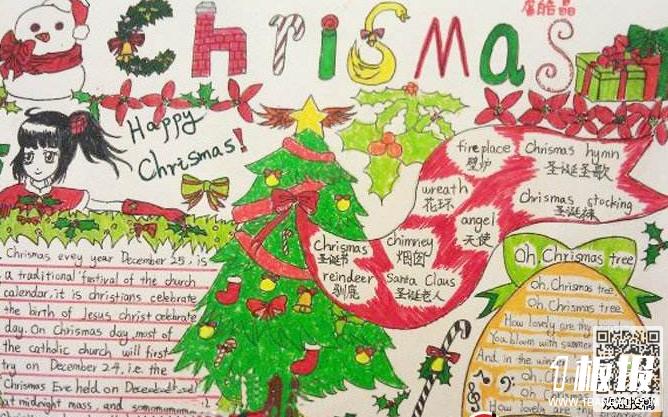 ChrisMas
Happy
Chrismas!
fireplace
壁炉
Chrismas hymn
圣诞圣歌
wreath
花环
Chrismas stocking
圣诞袜
angel
天使
Chrismas
圣诞节
chimney
烟囱
reindeer
驯鹿
Santa Claus
圣诞老人
Chrismas evey year December 25, is
a traditional festival of the church
calendar, it is christians celebrate
the birth of Jesus christ celebrate
day. On Chrismas day, most of
the catholic church will first
try on December 24, i.e. the
Chrismas Eve held on
at midnight mass, and
Oh, Chrismas tree
Oh, Chrismas tree
Oh Chrismas tree
How lovely are
You bloom with summer
And in the
Oh, Chrismas
Oh, Chrismas
How lovely are
板报